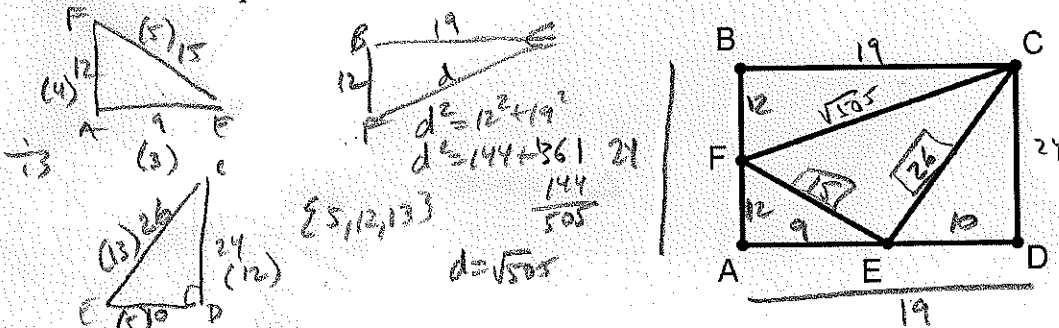 F
(5) 15
(4) 12
A 9 E
(3)
÷3
C
(13) 26
24
(12)
E (5) 10 D
B 19 C
12 d
F
d² = 12² + 19²
d² = 144 + 361
{5,12,13}
144
505
d = √505
B 19 C
12 √505
F 26 24
15
12 9 10
A E D
19